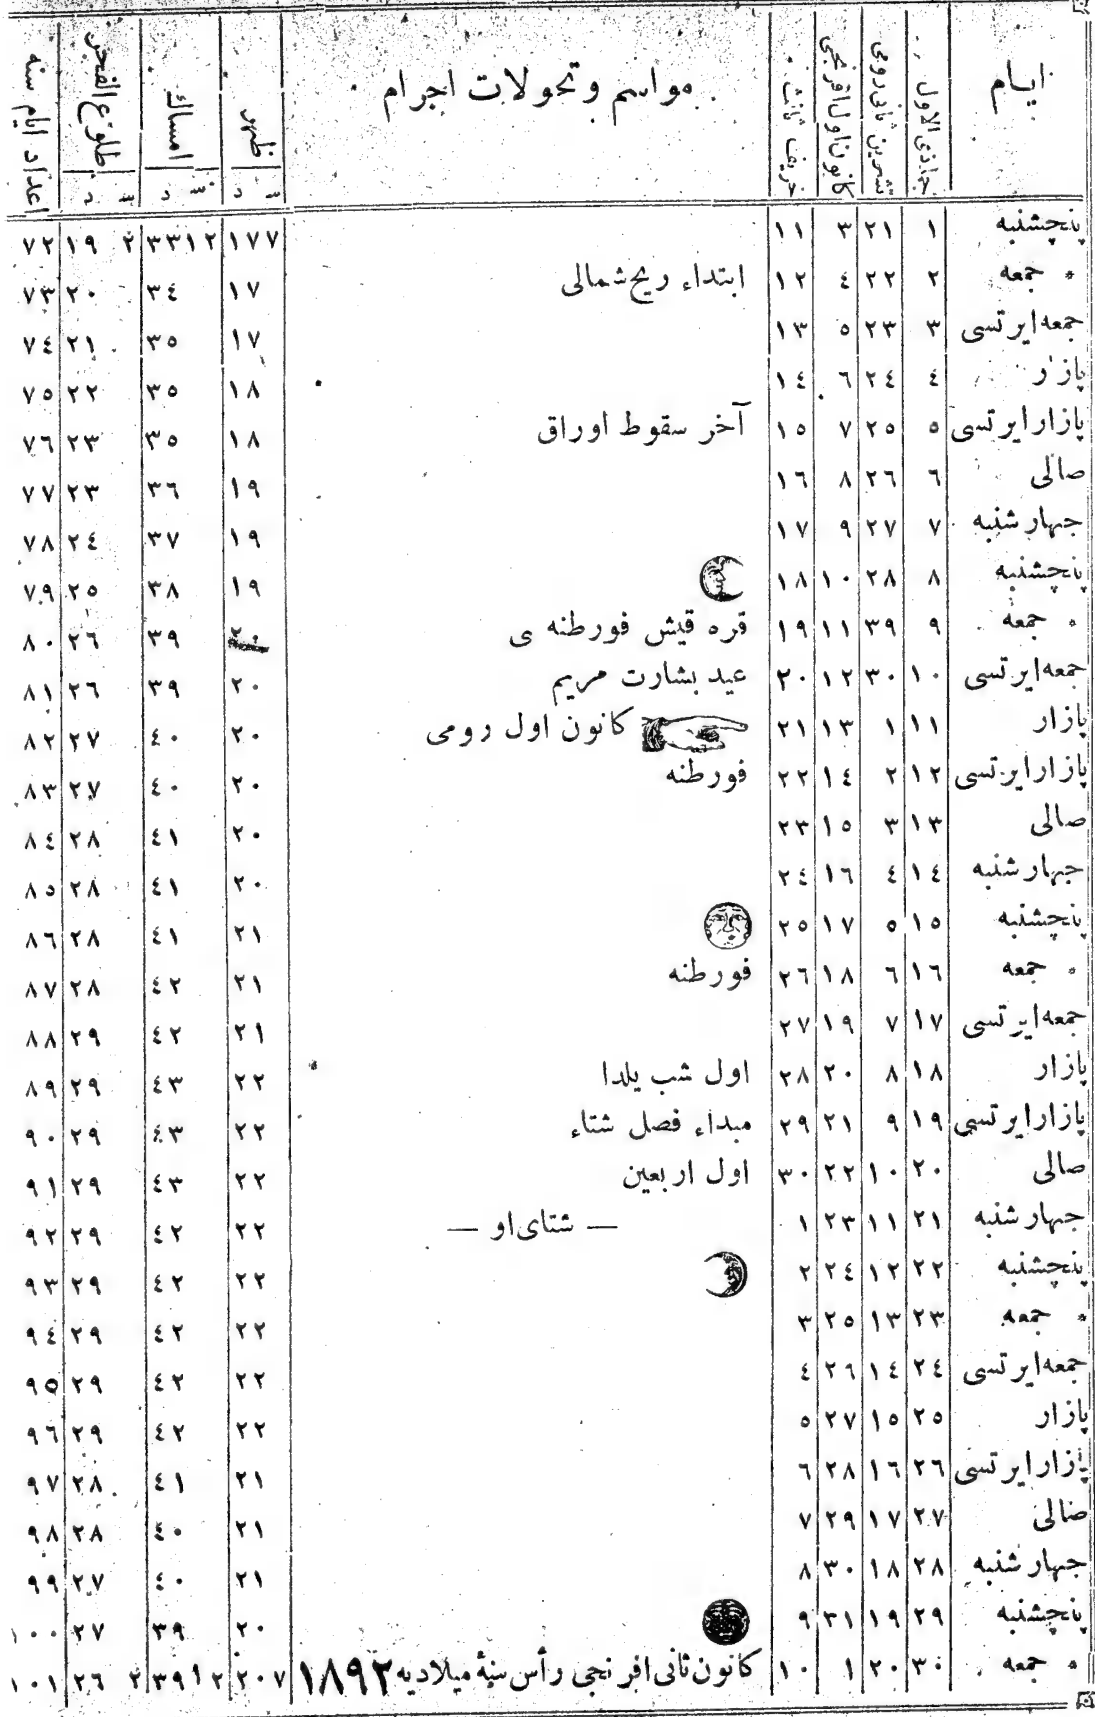 ایام جماذی الاول تشرین ثانی رومی كانون اول افرنجی خریف ثالث مواسم وتحولات اجرام ظهر س د امساك س د طلوع الفجر س د اعداد ایام سنه
پنجشنبه ١ ٢١ ٣ ١١ ٧ ١٧ ١٢ ٣٣ ٢ ١٩ ٧٢
* جمعه ٢ ٢٢ ٤ ١٢ ابتداء ریح شمالی ١٧ ٣٤ ٢٠ ٧٣
جمعه ایرتسی ٣ ٢٣ ٥ ١٣ ١٧ ٣٥ ٢١ ٧٤
پازار ٤ ٢٤ ٦ ١٤ ١٨ ٣٥ ٢٢ ٧٥
پازار ایرتسی ٥ ٢٥ ٧ ١٥ آخر سقوط اوراق ١٨ ٣٥ ٢٣ ٧٦
صالی ٦ ٢٦ ٨ ١٦ ١٩ ٣٦ ٢٣ ٧٧
جهارشنبه ٧ ٢٧ ٩ ١٧ ١٩ ٣٧ ٢٤ ٧٨
پنجشنبه ٨ ٢٨ ١٠ ١٨ ١٩ ٣٨ ٢٥ ٧٩
* جمعه ٩ ٣٩ ١١ ١٩ قره قیش فورطنه ی ٢٠ ٣٩ ٢٦ ٨٠
جمعه ایرتسی ١٠ ٣٠ ١٢ ٢٠ عید بشارت مریم ٢٠ ٣٩ ٢٦ ٨١
پازار ١١ ١ ١٣ ٢١ كانون اول رومی ٢٠ ٤٠ ٢٧ ٨٢
پازار ایرتسی ١٢ ٢ ١٤ ٢٢ فورطنه ٢٠ ٤٠ ٢٧ ٨٣
صالی ١٣ ٣ ١٥ ٢٣ ٢٠ ٤١ ٢٨ ٨٤
جهارشنبه ١٤ ٤ ١٦ ٢٤ ٢٠ ٤١ ٢٨ ٨٥
پنجشنبه ١٥ ٥ ١٧ ٢٥ ٢١ ٤١ ٢٨ ٨٦
* جمعه ١٦ ٦ ١٨ ٢٦ فورطنه ٢١ ٤٢ ٢٨ ٨٧
جمعه ایرتسی ١٧ ٧ ١٩ ٢٧ ٢١ ٤٢ ٢٩ ٨٨
پازار ١٨ ٨ ٢٠ ٢٨ اول شب یلدا ٢٢ ٤٣ ٢٩ ٨٩
پازار ایرتسی ١٩ ٩ ٢١ ٢٩ مبداء فصل شتاء ٢٢ ٤٣ ٢٩ ٩٠
صالی ٢٠ ١٠ ٢٢ ٣٠ اول اربعین ٢٢ ٤٣ ٢٩ ٩١
جهارشنبه ٢١ ١١ ٢٣ ١ — شتای او — ٢٢ ٤٢ ٢٩ ٩٢
پنجشنبه ٢٢ ١٢ ٢٤ ٢ ٢٢ ٤٢ ٢٩ ٩٣
* جمعه ٢٣ ١٣ ٢٥ ٣ ٢٢ ٤٢ ٢٩ ٩٤
جمعه ایرتسی ٢٤ ١٤ ٢٦ ٤ ٢٢ ٤٢ ٢٩ ٩٥
پازار ٢٥ ١٥ ٢٧ ٥ ٢٢ ٤٢ ٢٩ ٩٦
پازار ایرتسی ٢٦ ١٦ ٢٨ ٦ ٢١ ٤١ ٢٨ ٩٧
صالی ٢٧ ١٧ ٢٩ ٧ ٢١ ٤٠ ٢٨ ٩٨
جهارشنبه ٢٨ ١٨ ٣٠ ٨ ٢١ ٤٠ ٢٧ ٩٩
پنجشنبه ٢٩ ١٩ ٣١ ٩ ٢٠ ٣٩ ٢٧ ١٠٠
* جمعه ٣٠ ٢٠ ١ ١٠ كانون ثانی افرنجی رأس سنهٔ میلادیه ١٨٩٢ ٧ ٢٠ ١٢ ٣٩ ٢ ٢٦ ١٠١